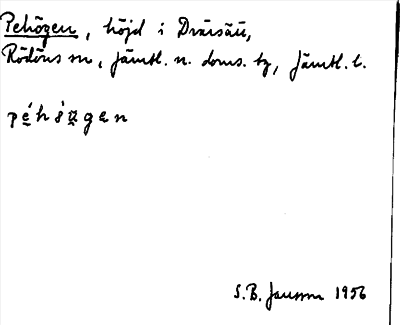 Pehögen, höjd i Dvärsätt,
Rödöns sn, Jämtl. n. doms. tg, Jämtl. l.
S.B. Jansson 1956